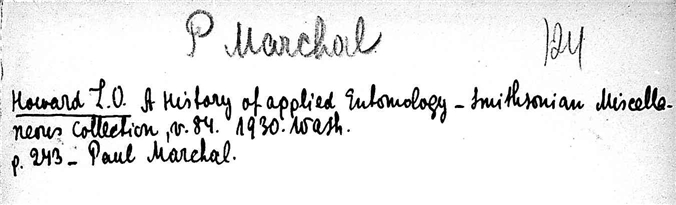 P Marchal 124
Howard L.O. A History of applied Entomology - Smithsonian Miscella-
neous Collection, v. 84. 1930. Wash.
p. 243 - Paul Marchal.